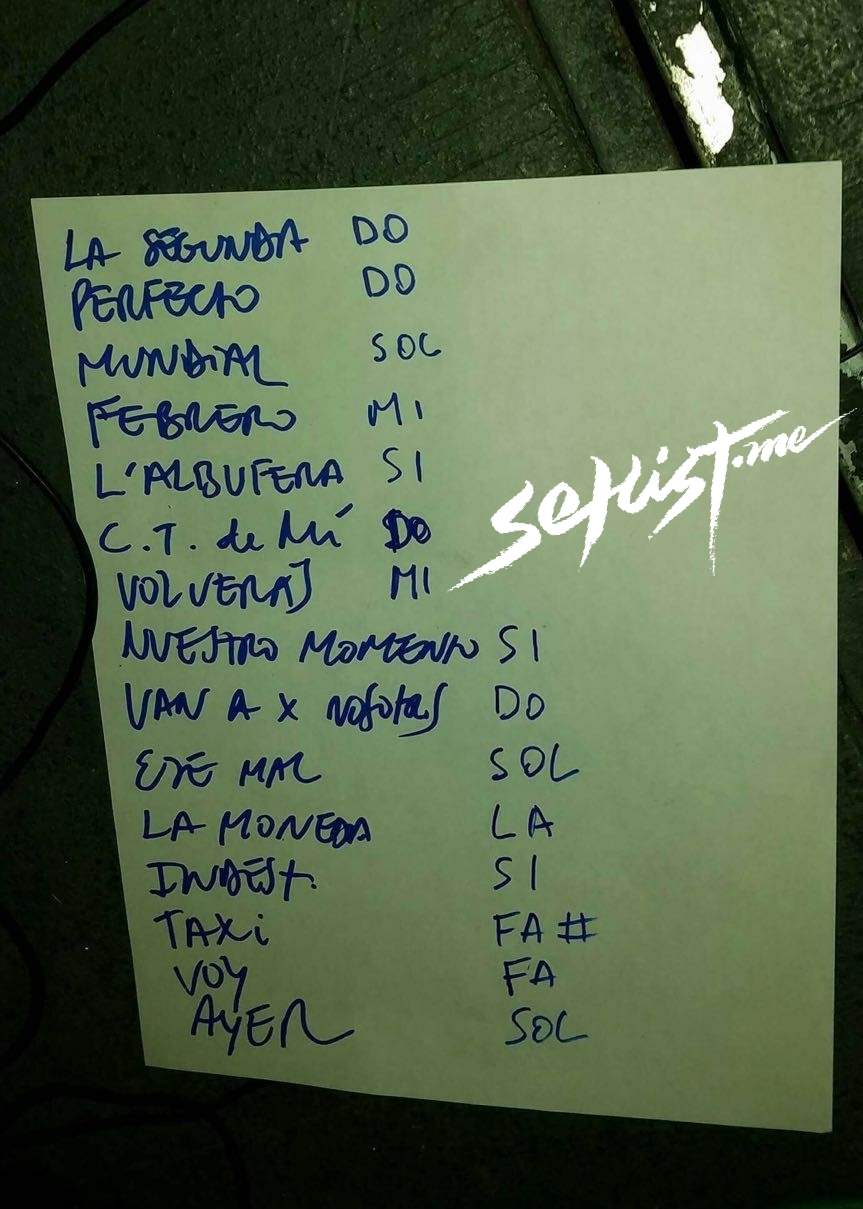 LA SEGUNDA DO
PERFECTO DO
MUNDIAL SOL
FEBRERO MI
L'ALBUFERA SI
C.T. de Mí DO
VOLVERAS MI
NUESTRO MOMENTO SI
VAN A X NOSOTROS DO
ESE MAL SOL
LA MONEDA LA
INDEST. SI
TAXi FA#
VOY FA
AYER SOL
setlist.me